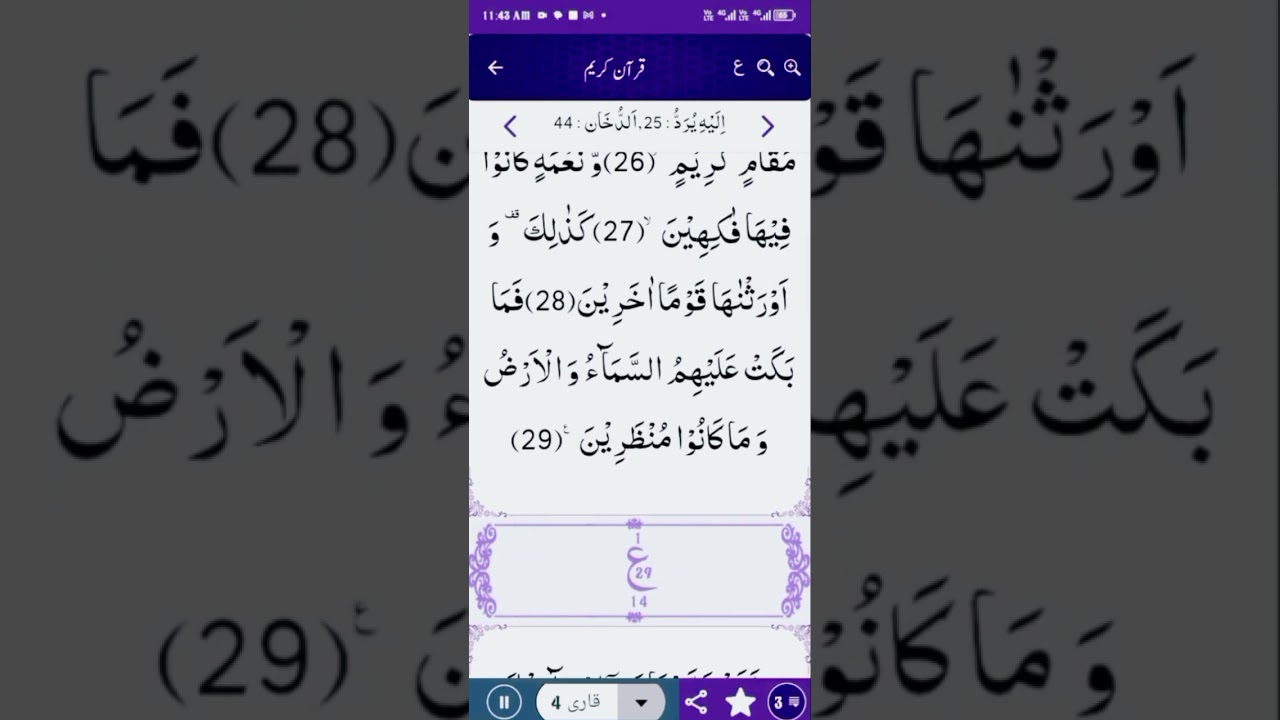 11:43 AM
قرآن کریم ع
اِلَیْهِ یُرَدُّ : 25, اَلدُّخَان : 44
مَقَامٍ كَرِیْمٍ ۙ(26) وَّ نَعْمَةٍ كَانُوْا
فِیْهَا فٰكِهِیْنَ ۙ(27) كَذٰلِكَ ۫ وَ
اَوْرَثْنٰهَا قَوْمًا اٰخَرِیْنَ(28) فَمَا
بَكَتْ عَلَیْهِمُ السَّمَآءُ وَ الْاَرْضُ
وَ مَا كَانُوْا مُنْظَرِیْنَ ۠(29)
1
ع
29
14
قاری 4
3
اَوْرَثْنٰهَا
نَ(28) فَمَا
بَكَتْ عَلَیْهِ
وَ الْاَرْضُ
وَ مَا كَانُوْ
نَ ۠(29)